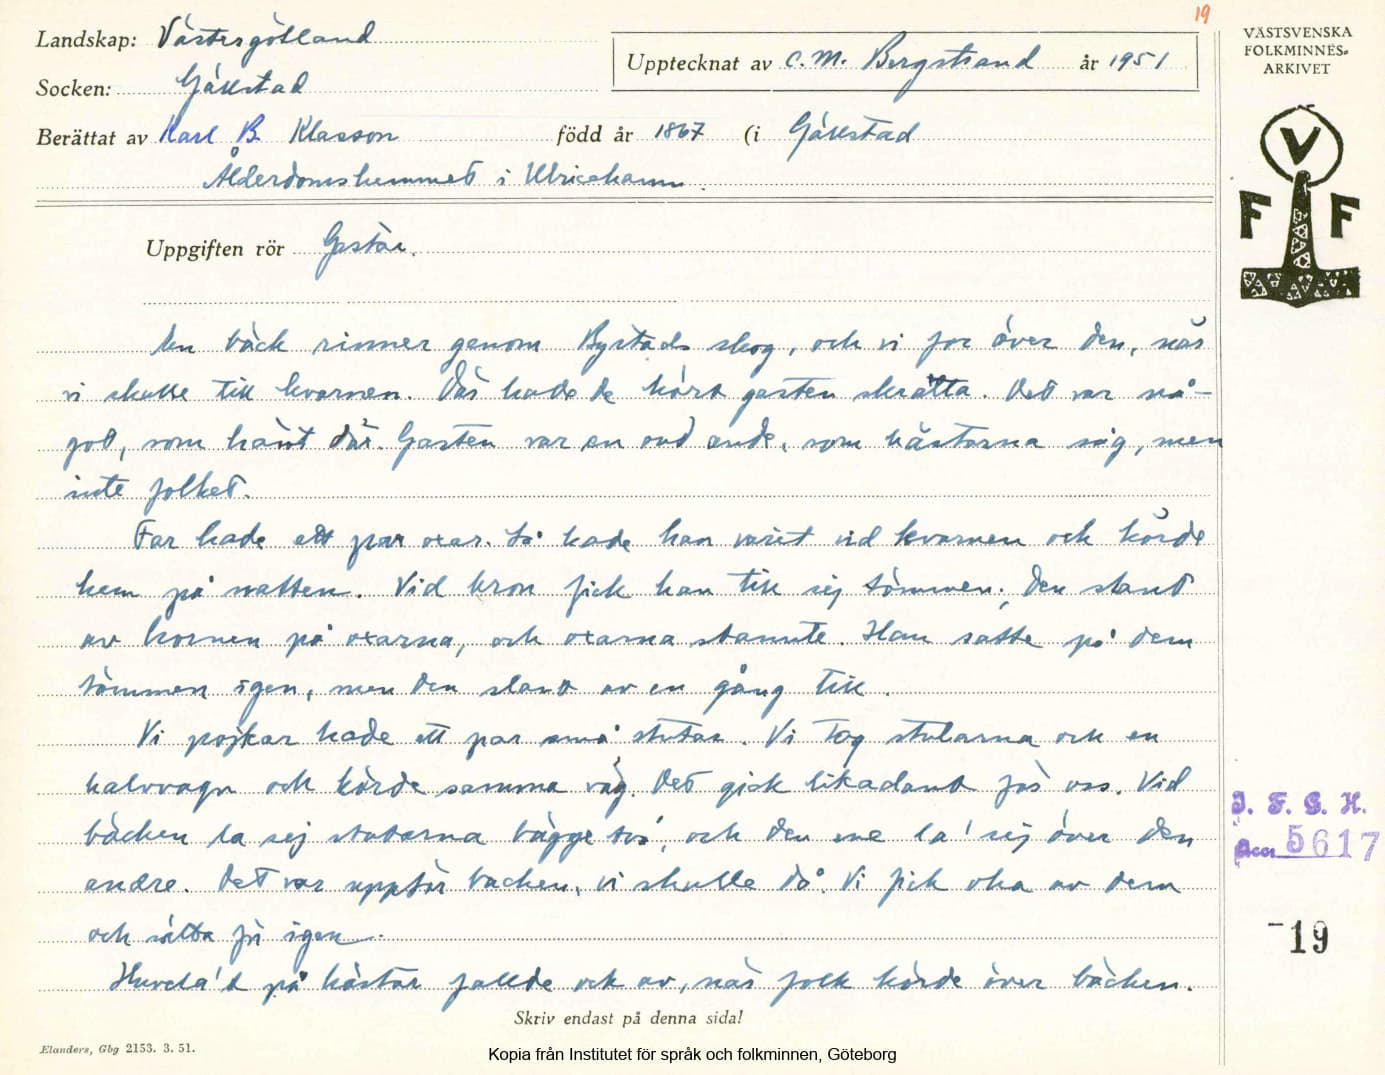 19
Landskap: Västergötland
Upptecknat av C. M. Bergstrand år 1951
Socken: Gällstad
Berättat av Karl B. Klasson född år 1867 (i Gällstad
Ålderdomshemmet i Ulricehamn.
VÄSTSVENSKA
FOLKMINNES-
ARKIVET
V
F F
Uppgiften rör Gastar.
En bäck rinner genom Bystads skog, och vi for över den, när
vi skulle till kvarnen. Där hade de hört gasten skratta. Det var nå-
got, som hänt där. Gasten var en ond ande, som hästarna såg, men
inte folket.
Far hade ett par oxar. Så hade han varit vid kvarnen och körde
hem på natten. Vid bron fick han till sej tömmen. Den sland
av hornen på oxarna, och oxarna stannte. Han satte på dem
tömmen igen, men den sland av en gång till.
Vi pojkar hade ett par små stutar. Vi tog stutarna och en
halvvagn och körde samma väg. Det gick likadant för oss. Vid
bäcken la sej stutarna bägge två, och den ene la' sej över den
andre. Det var uppför backen, vi skulle då. Vi fick oka av dem
och sätta för igen.
Huvela'd på hästar fallde ock av, när folk körde över bäcken.
Skriv endast på denna sida!
Elanders, Gbg 2153. 3. 51.
Kopia från Institutet för språk och folkminnen, Göteborg
I. F. G. H.
Acc 5617
-19